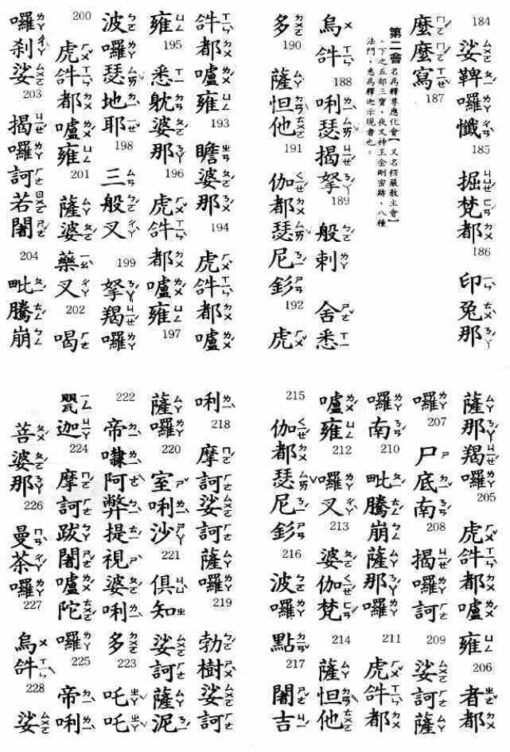 184 娑鞞囉懺 185 掘梵都 186 印兔那
麼麼寫 187
第二會 名為釋尊應化會【又名楞嚴教主會】
。下之五部三寶，夜叉神王金剛密跡，八種
法門，悉為釋迦示現者也。
烏𤙖 188 唎瑟揭拏 189 般剌 舍悉
多 190 薩怛他 191 伽都瑟尼釤 192 虎
𤙖都嚧雍 193 瞻婆那 194 虎𤙖都嚧
雍 195 悉躭婆那 196 虎𤙖都嚧雍 197
波囉瑟地耶 198 三般叉 199 拏羯囉
200 虎𤙖都嚧雍 201 薩婆藥叉 202 喝
囉剎娑 203 揭囉訶若闍 204 毗騰崩
薩那羯囉 205 虎𤙖都嚧雍 206 者都
囉 207 尸底南 208 揭囉訶 209 娑訶薩
囉南 210 毗騰崩薩那囉 211 虎𤙖都
嚧雍 212 囉叉 213 婆伽梵 214 薩怛他
215 伽都瑟尼釤 216 波囉點 217 闍吉
唎 218 摩訶娑訶薩囉 219 勃樹娑訶
薩囉 220 室唎沙 221 俱知娑訶薩泥
222 帝㘑阿弊提視婆唎多 223 吒吒
甖迦 224 摩訶跋闍嚧陀囉 225 帝唎
菩婆那 226 曼茶囉 227 烏𤙖 228 娑